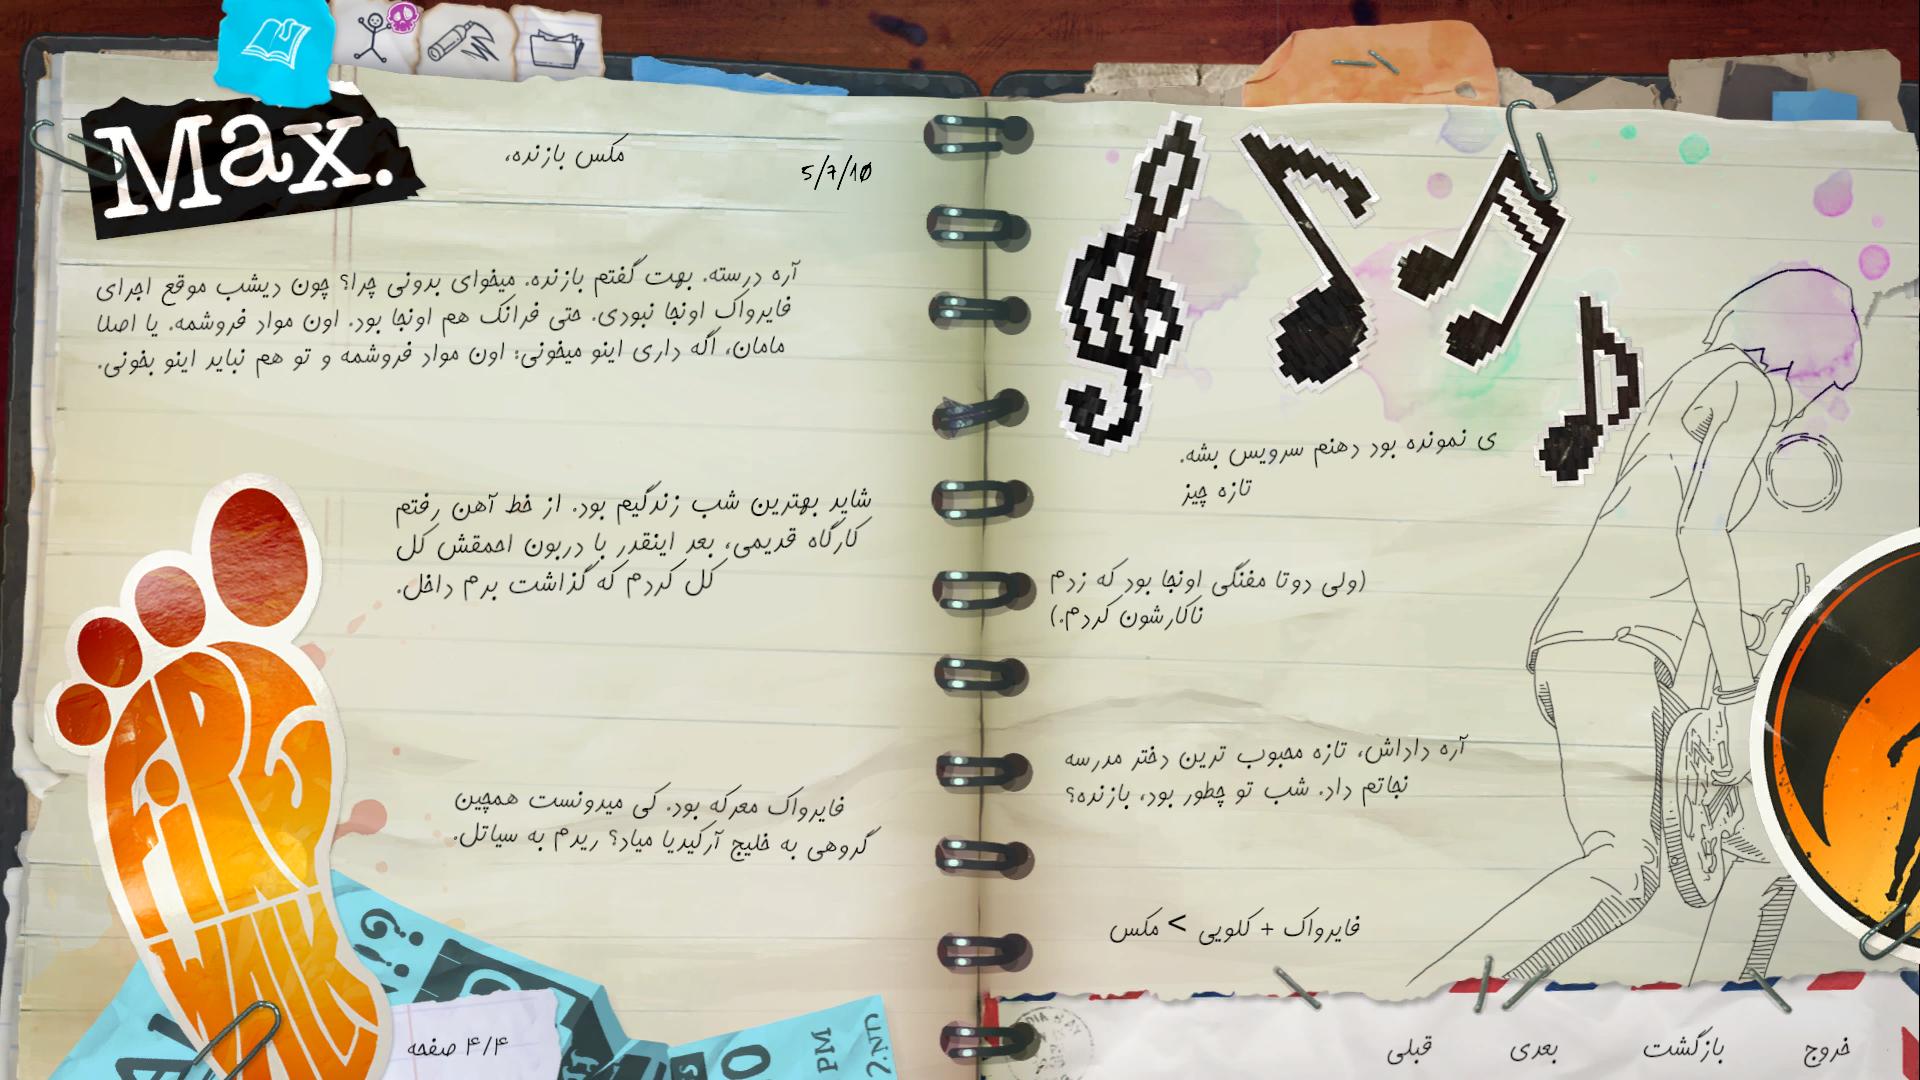 Max.
مکس بازنده،
5/7/10
آره درسته. بهت گفتم بازنده. میخوای بدونی چرا؟ چون دیشب موقع اجرای
فایرواک اونجا نبودی. حتی فرانک هم اونجا بود. اون مواد فروشمه. یا اصلا
مامان، اگه داری اینو میخونی: اون مواد فروشمه و تو هم نباید اینو بخونی.
شاید بهترین شب زندگیم بود. از خط آهن رفتم
کارگاه قدیمی، بعد اینقدر با دربون احمقش کل
کل کردم که گذاشت برم داخل.
فایرواک معرکه بود. کی میدونست همچین
گروهی به خلیج آرکیدیا میاد؟ ریدم به سیاتل.
FIRE
WALK
PM
۴/۴ صفحه
ی نمونده بود دهنم سرویس بشه.
تازه چیز
(ولی دوتا مفنگی اونجا بود که زدم
ناکارشون کردم.)
آره داداش، تازه محبوب ترین دختر مدرسه
نجاتم داد. شب تو چطور بود، بازنده؟
فایرواک + کلویی > مکس
خروج
بازگشت
بعدی
قبلی